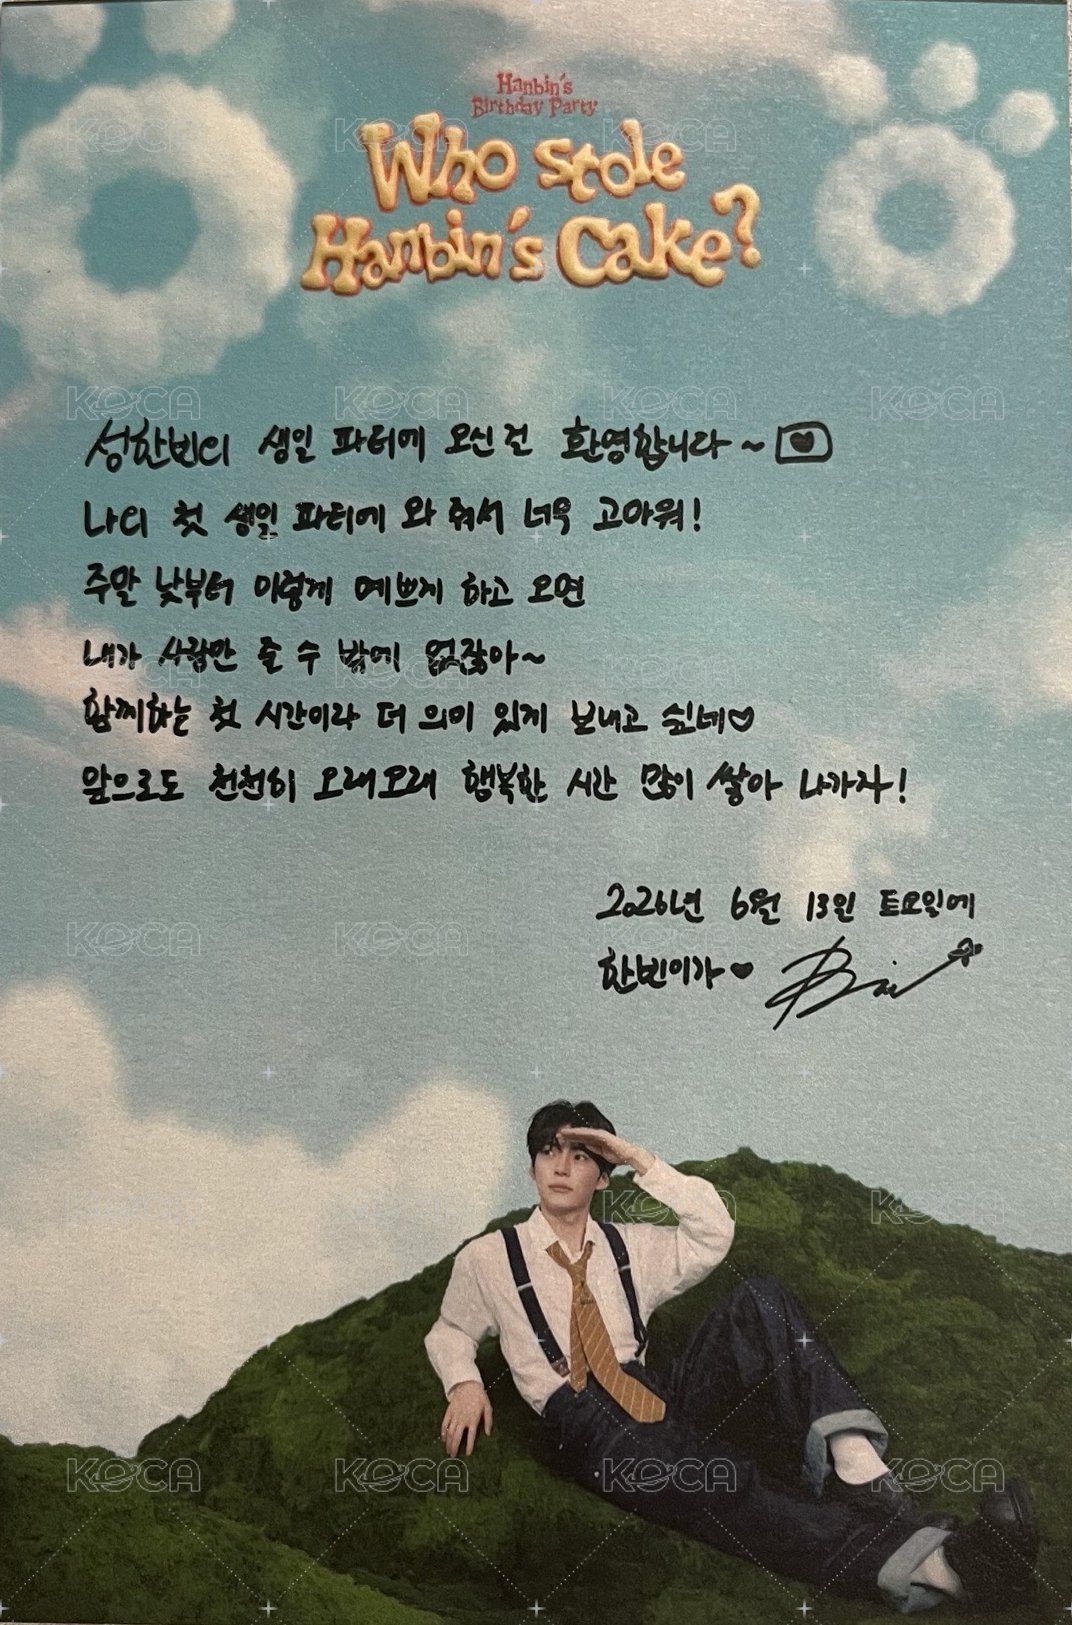 Hanbin's
Birthday Party
Who Stole
Hanbin's Cake?
성한빈의 생일 파티에 오신 걸 환영합니다~
나의 첫 생일 파티에 와 줘서 너무 고마워!
주말 낮부터 이렇게 예쁘게 하고 오면
내가 사랑만 줄 수 밖에 없잖아~
함께하는 첫 시간이라 더 의미 있게 보내고 싶네♡
앞으로도 천천히 오래오래 행복한 시간 많이 쌓아 나가자!
2026년 6월 13일 토요일에
한빈이가♥
KOCA KOCA KOCA KOCA
KOCA KOCA KOCA KOCA
KOCA KOCA KOCA KOCA
KOCA KOCA KOCA KOCA
KOCA KOCA KOCA KOCA
KOCA KOCA KOCA KOCA